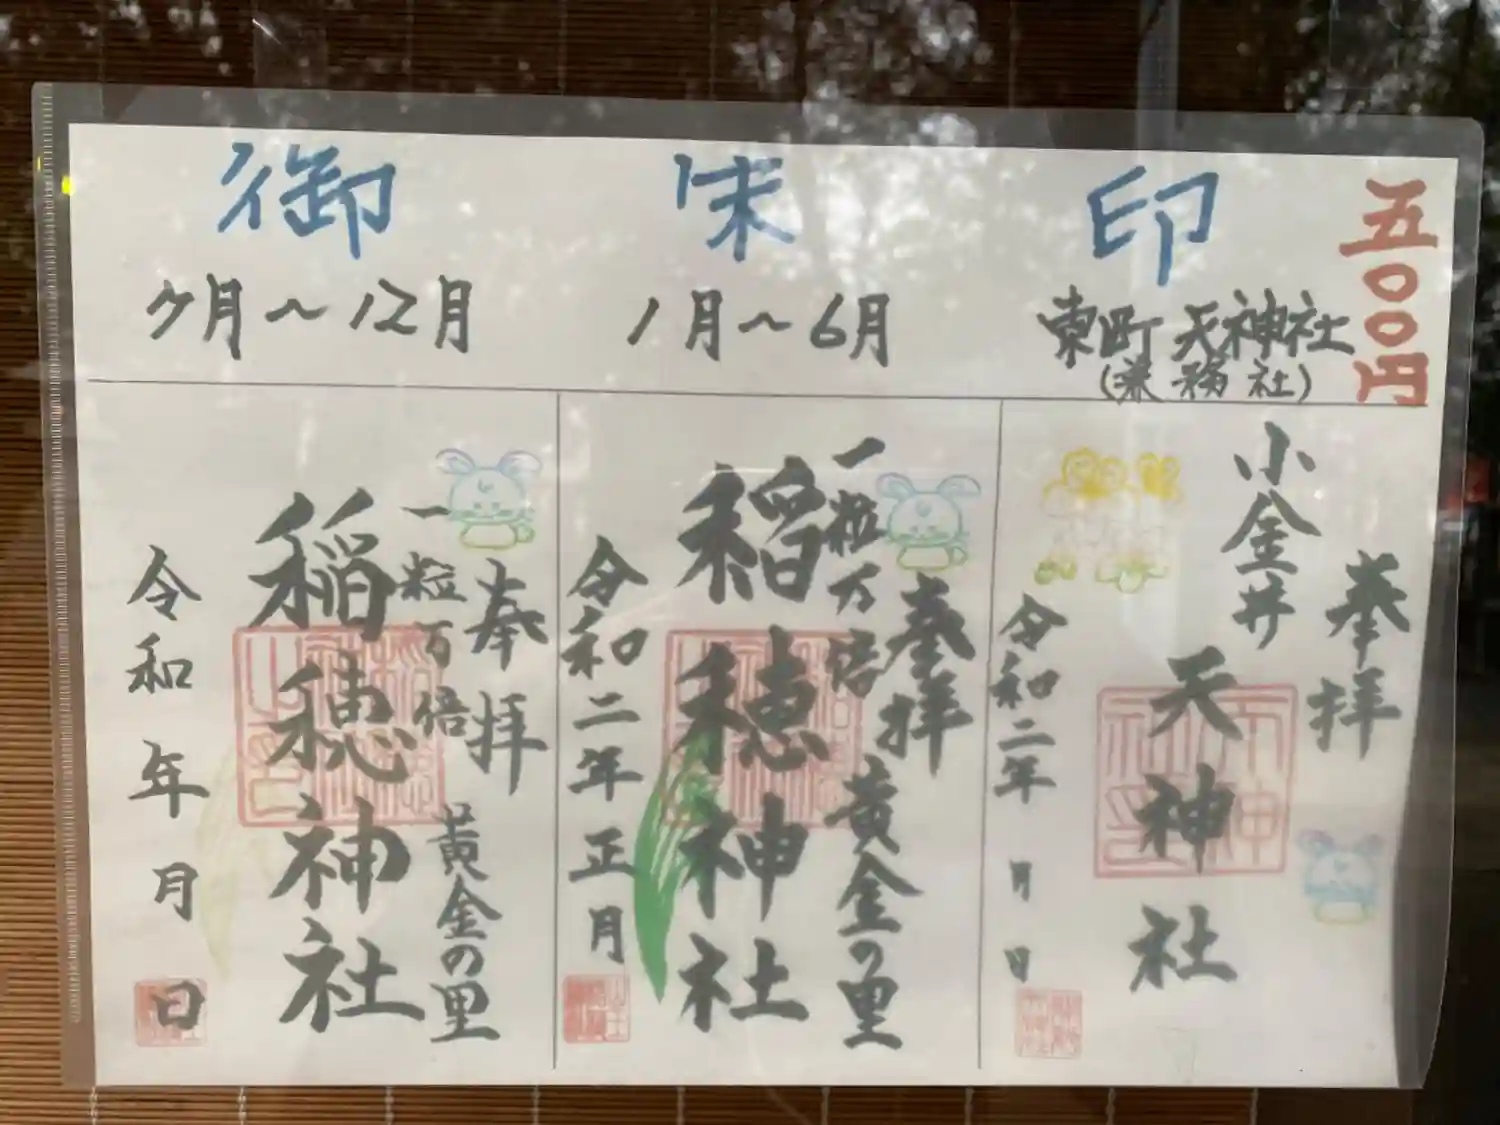 御朱印
五〇〇円
7月〜12月
1月〜6月
東町天神社
(兼務社)
奉拝
小金井
天神社
令和二年 月 日
奉拝
一粒万倍 黄金の里
稲穂神社
令和二年正月
奉拝
一粒百倍 黄金の里
稲穂神社
令和 年 月 日